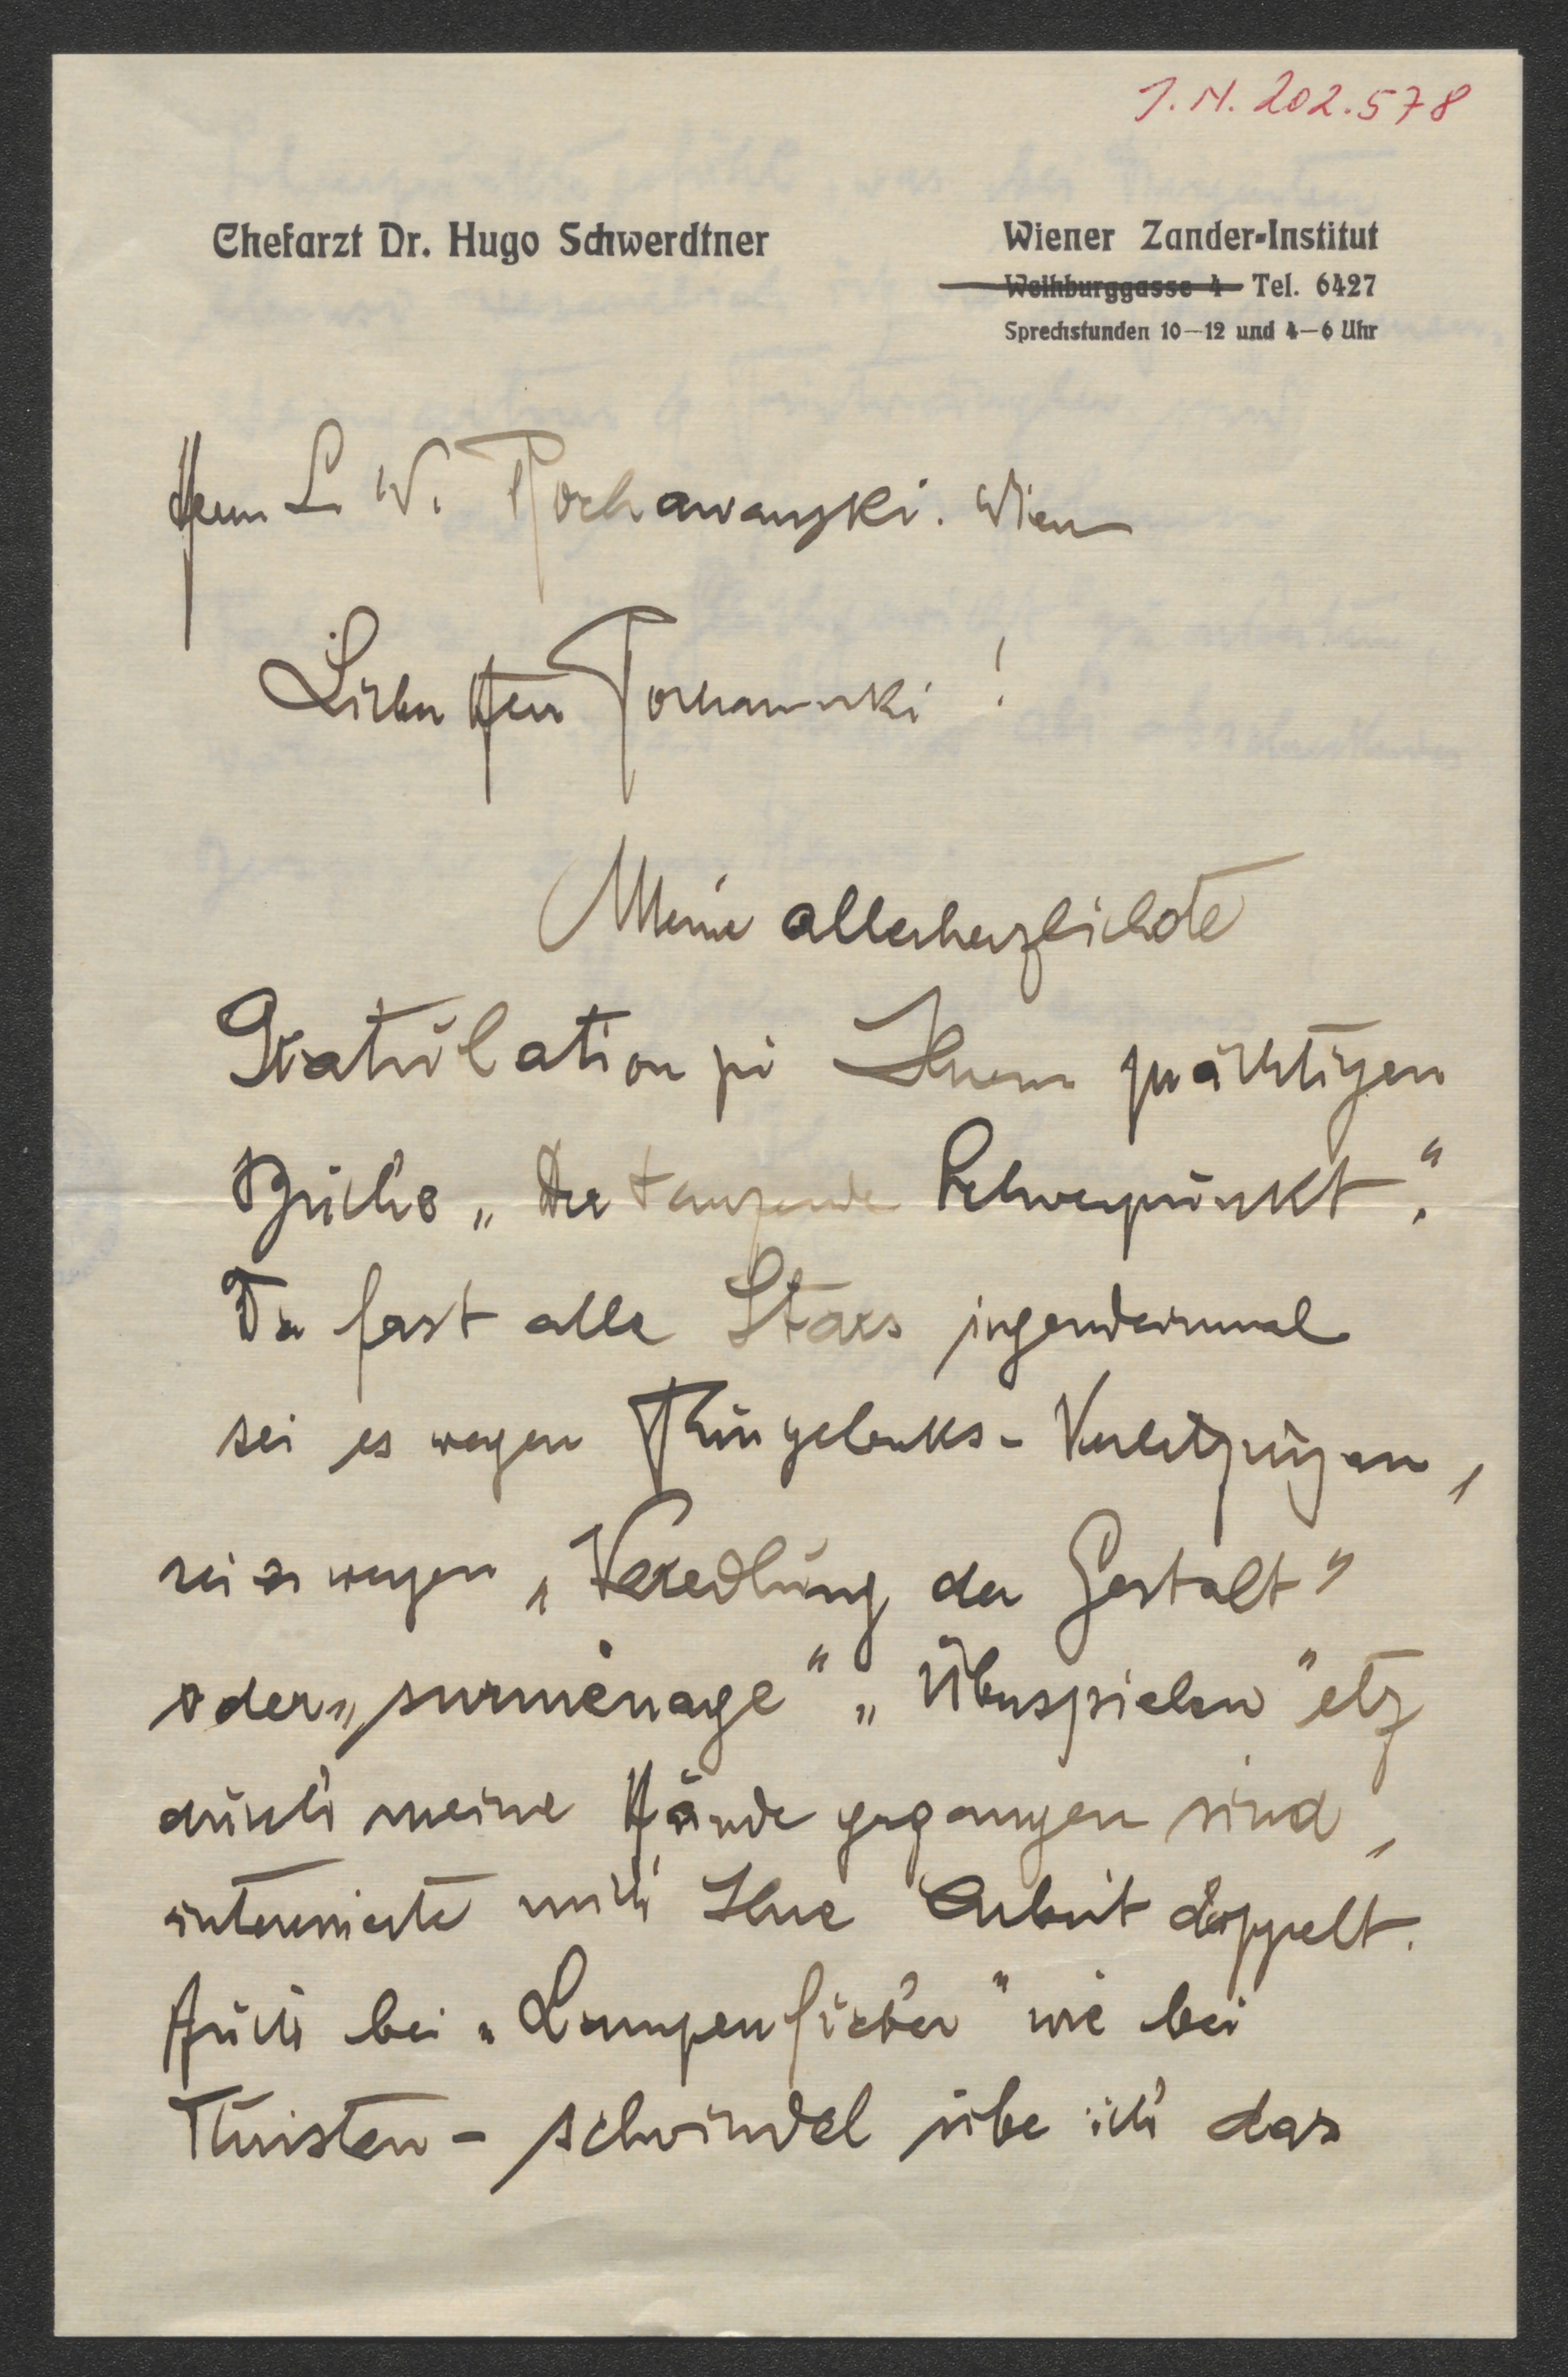 J. N. 202.578
Chefarzt Dr. Hugo Schwerdtner
Wiener Zander-Institut
Weihburggasse 4 Tel. 6427
Sprechstunden 10—12 und 4—6 Uhr
Herrn L. W. Rochowanski. Wien
Lieber Herr Rochowanski!
Meine allerherzlichste
Gratulation zu Ihrem prächtigen
Buche „Der tanzende Schwerpunkt“.
Da fast alle Stars irgendeinmal
sei es wegen Fußgelenks-Verletzungen,
sei es wegen „Veredlung der Gestalt“
oder „surménage“ „Überspielen“ etz
durch meine Hände gegangen sind,
interessierte mich Ihre Arbeit doppelt.
Auch bei „Lampenfieber“ wie bei
Turisten-schwindel übe ich das